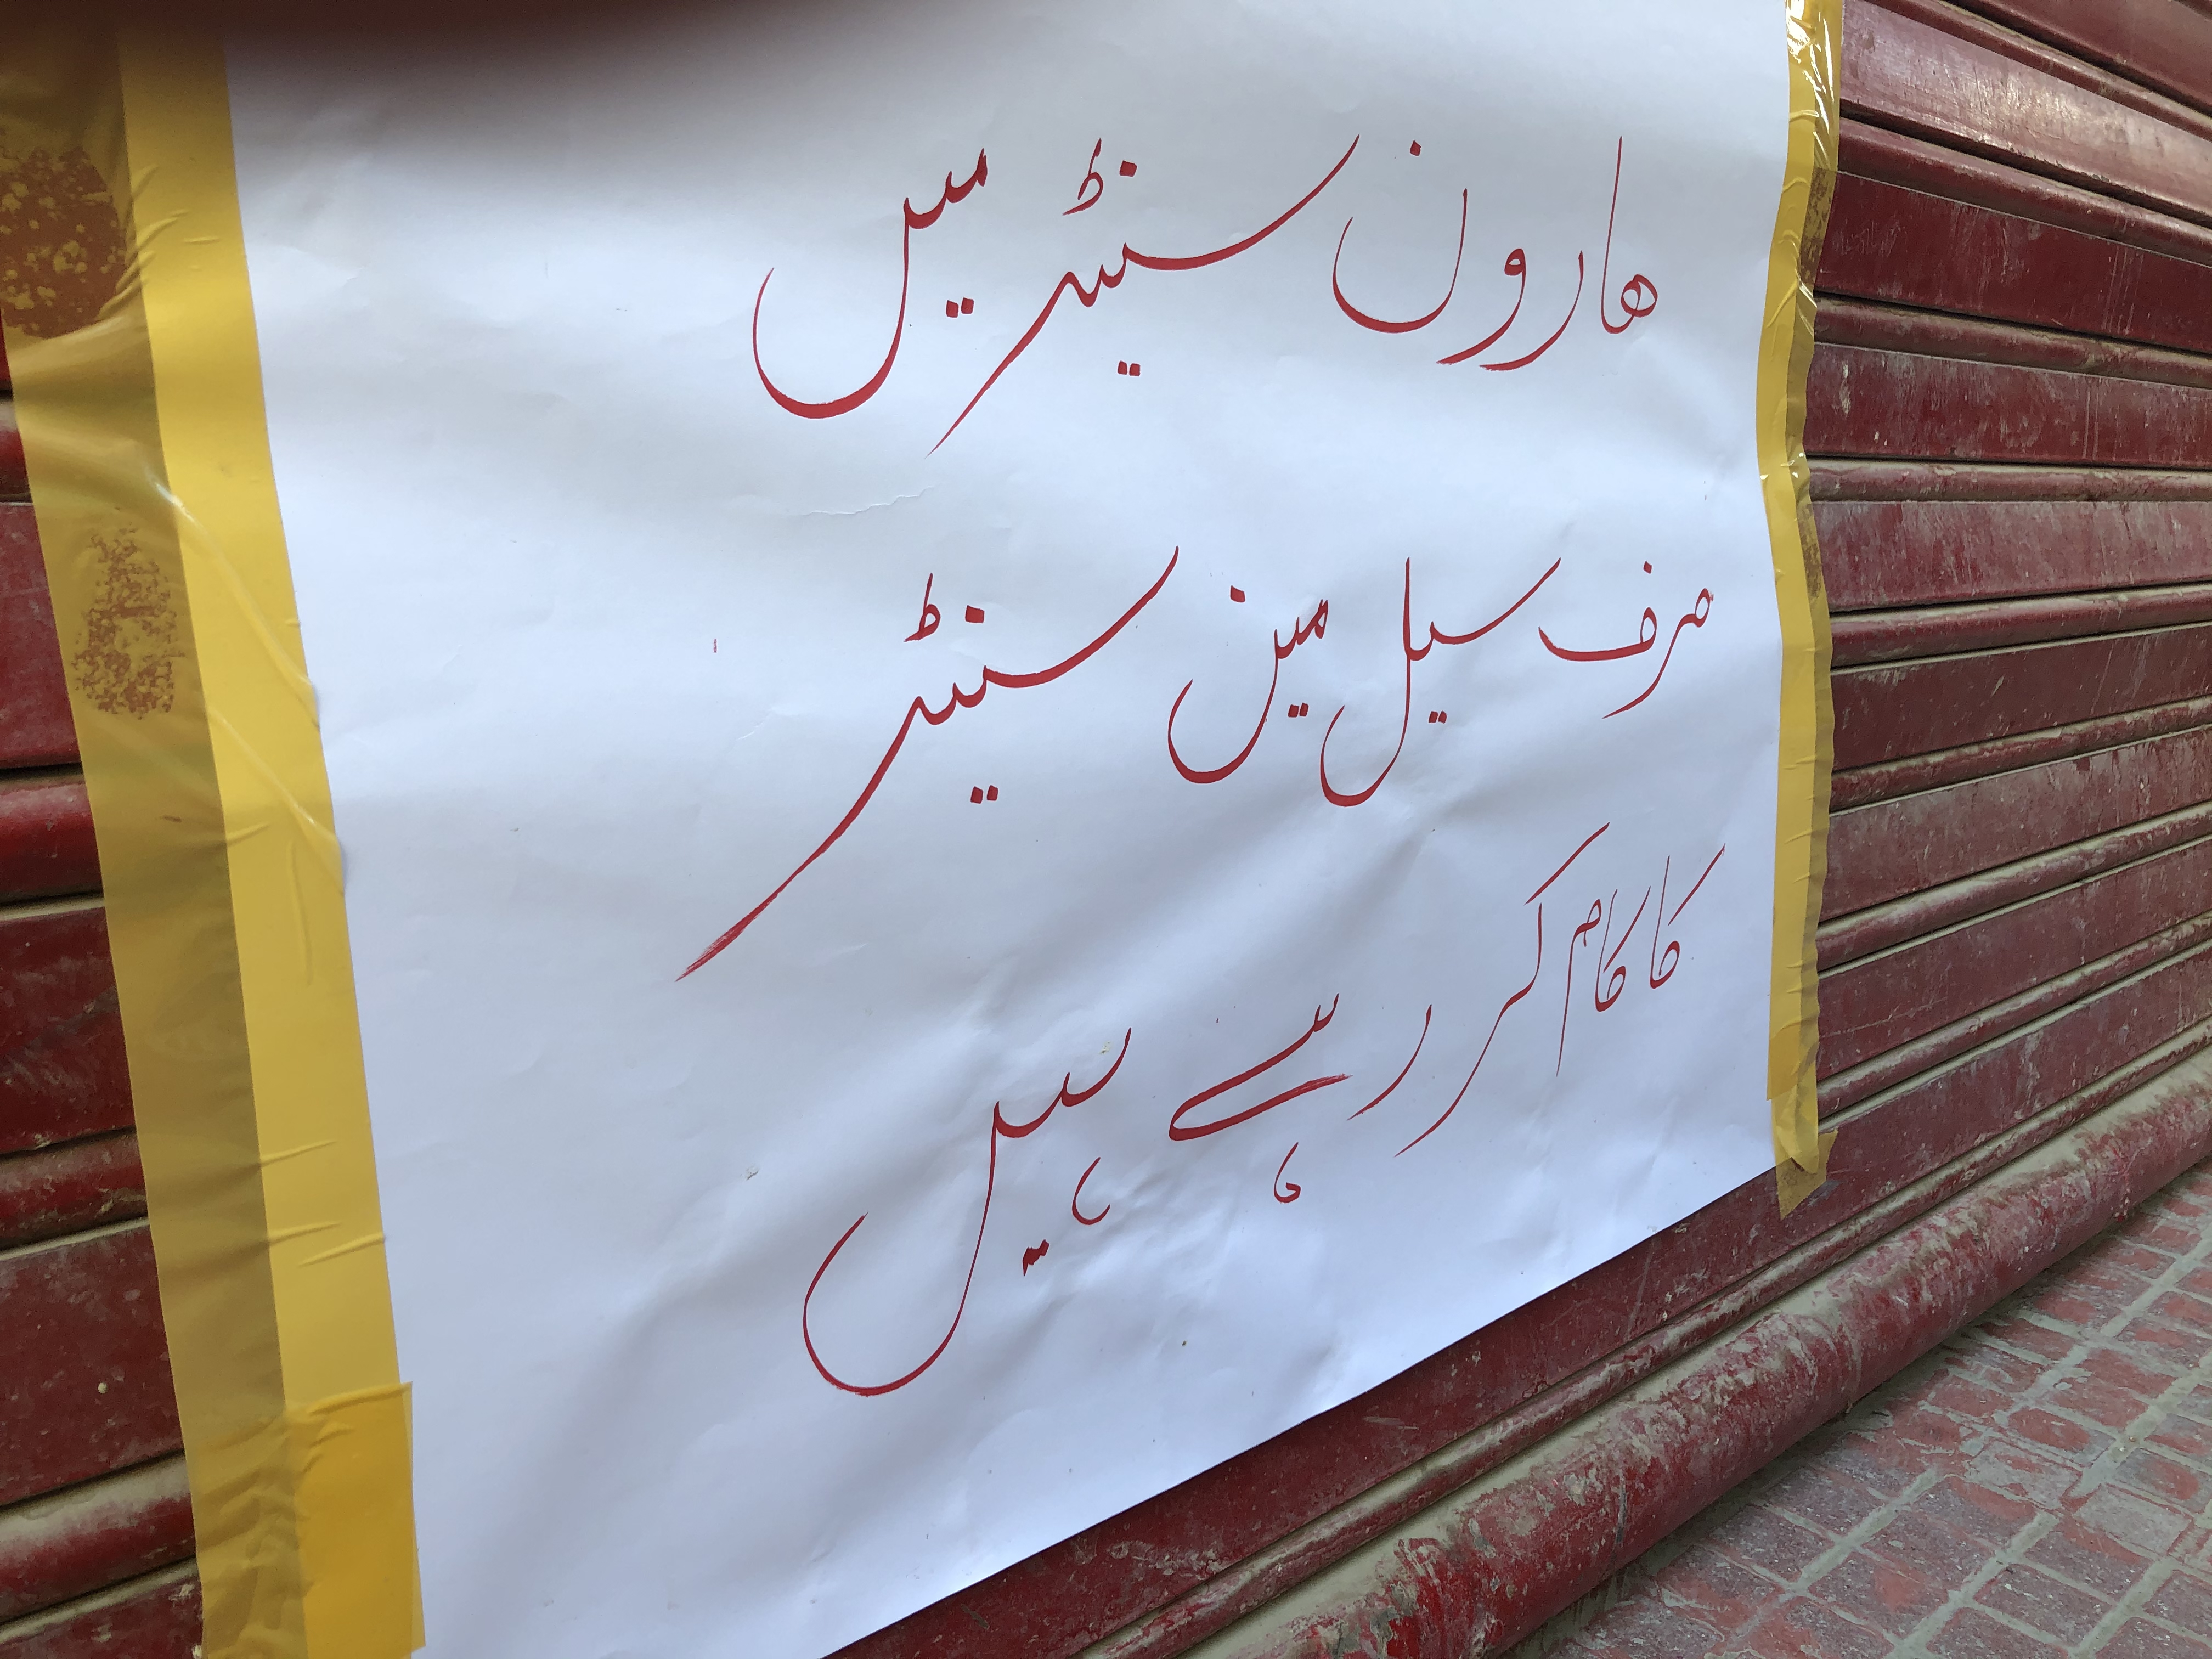 ھارون سینٹر میں
صرف سیل مین سینٹر
کا کام کر رہے ہیں